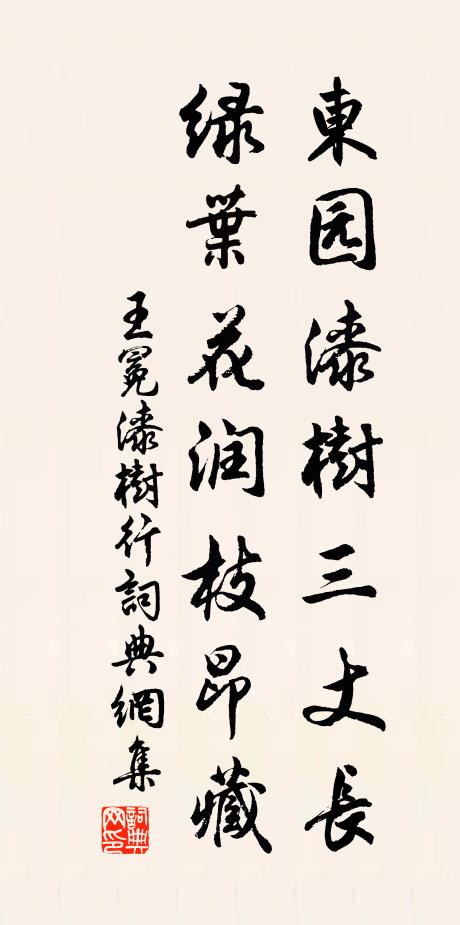 東园漆樹三丈長
绿葉花润枝昂藏
王冕漆樹行詞典網集
詞典網印